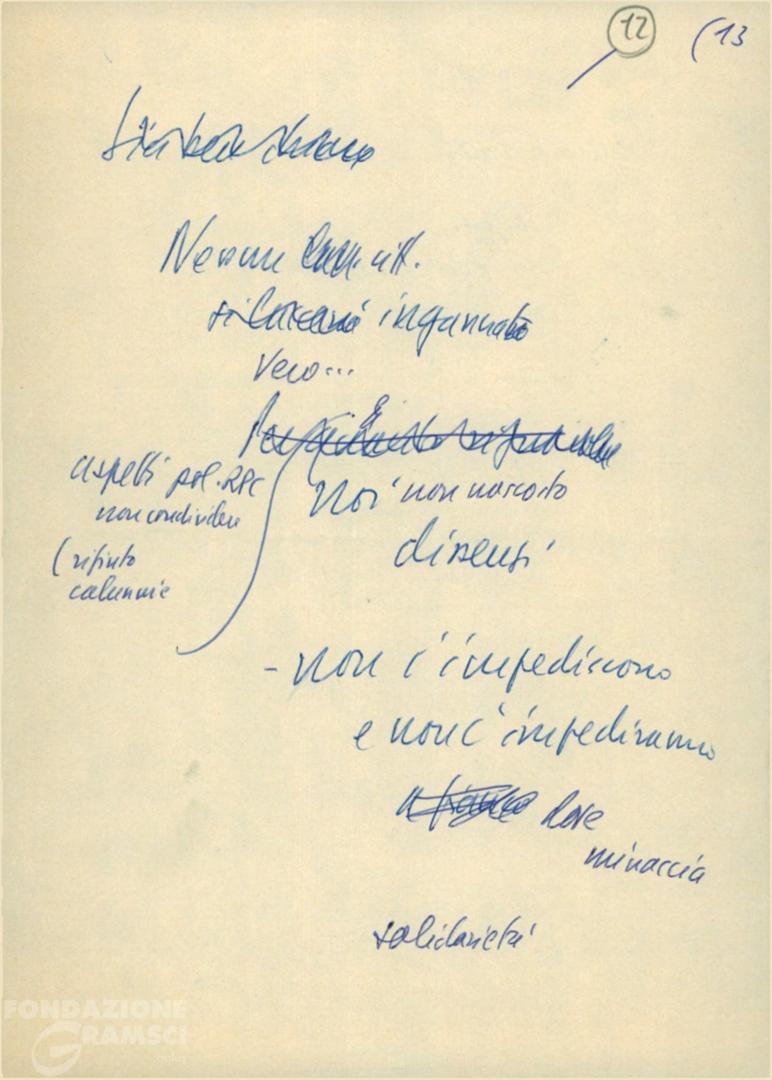 12 (13
Sia ben chiaro
Nessun
si ingannato
Vero...
aspetti pol. RPC
non condividere
(rifiuto
calunnie
Noi non nascosto
dissensi
- non c'impediscono
e non c'impediranno
dove
minaccia
solidarietà
FONDAZIONE
GRAMSCI